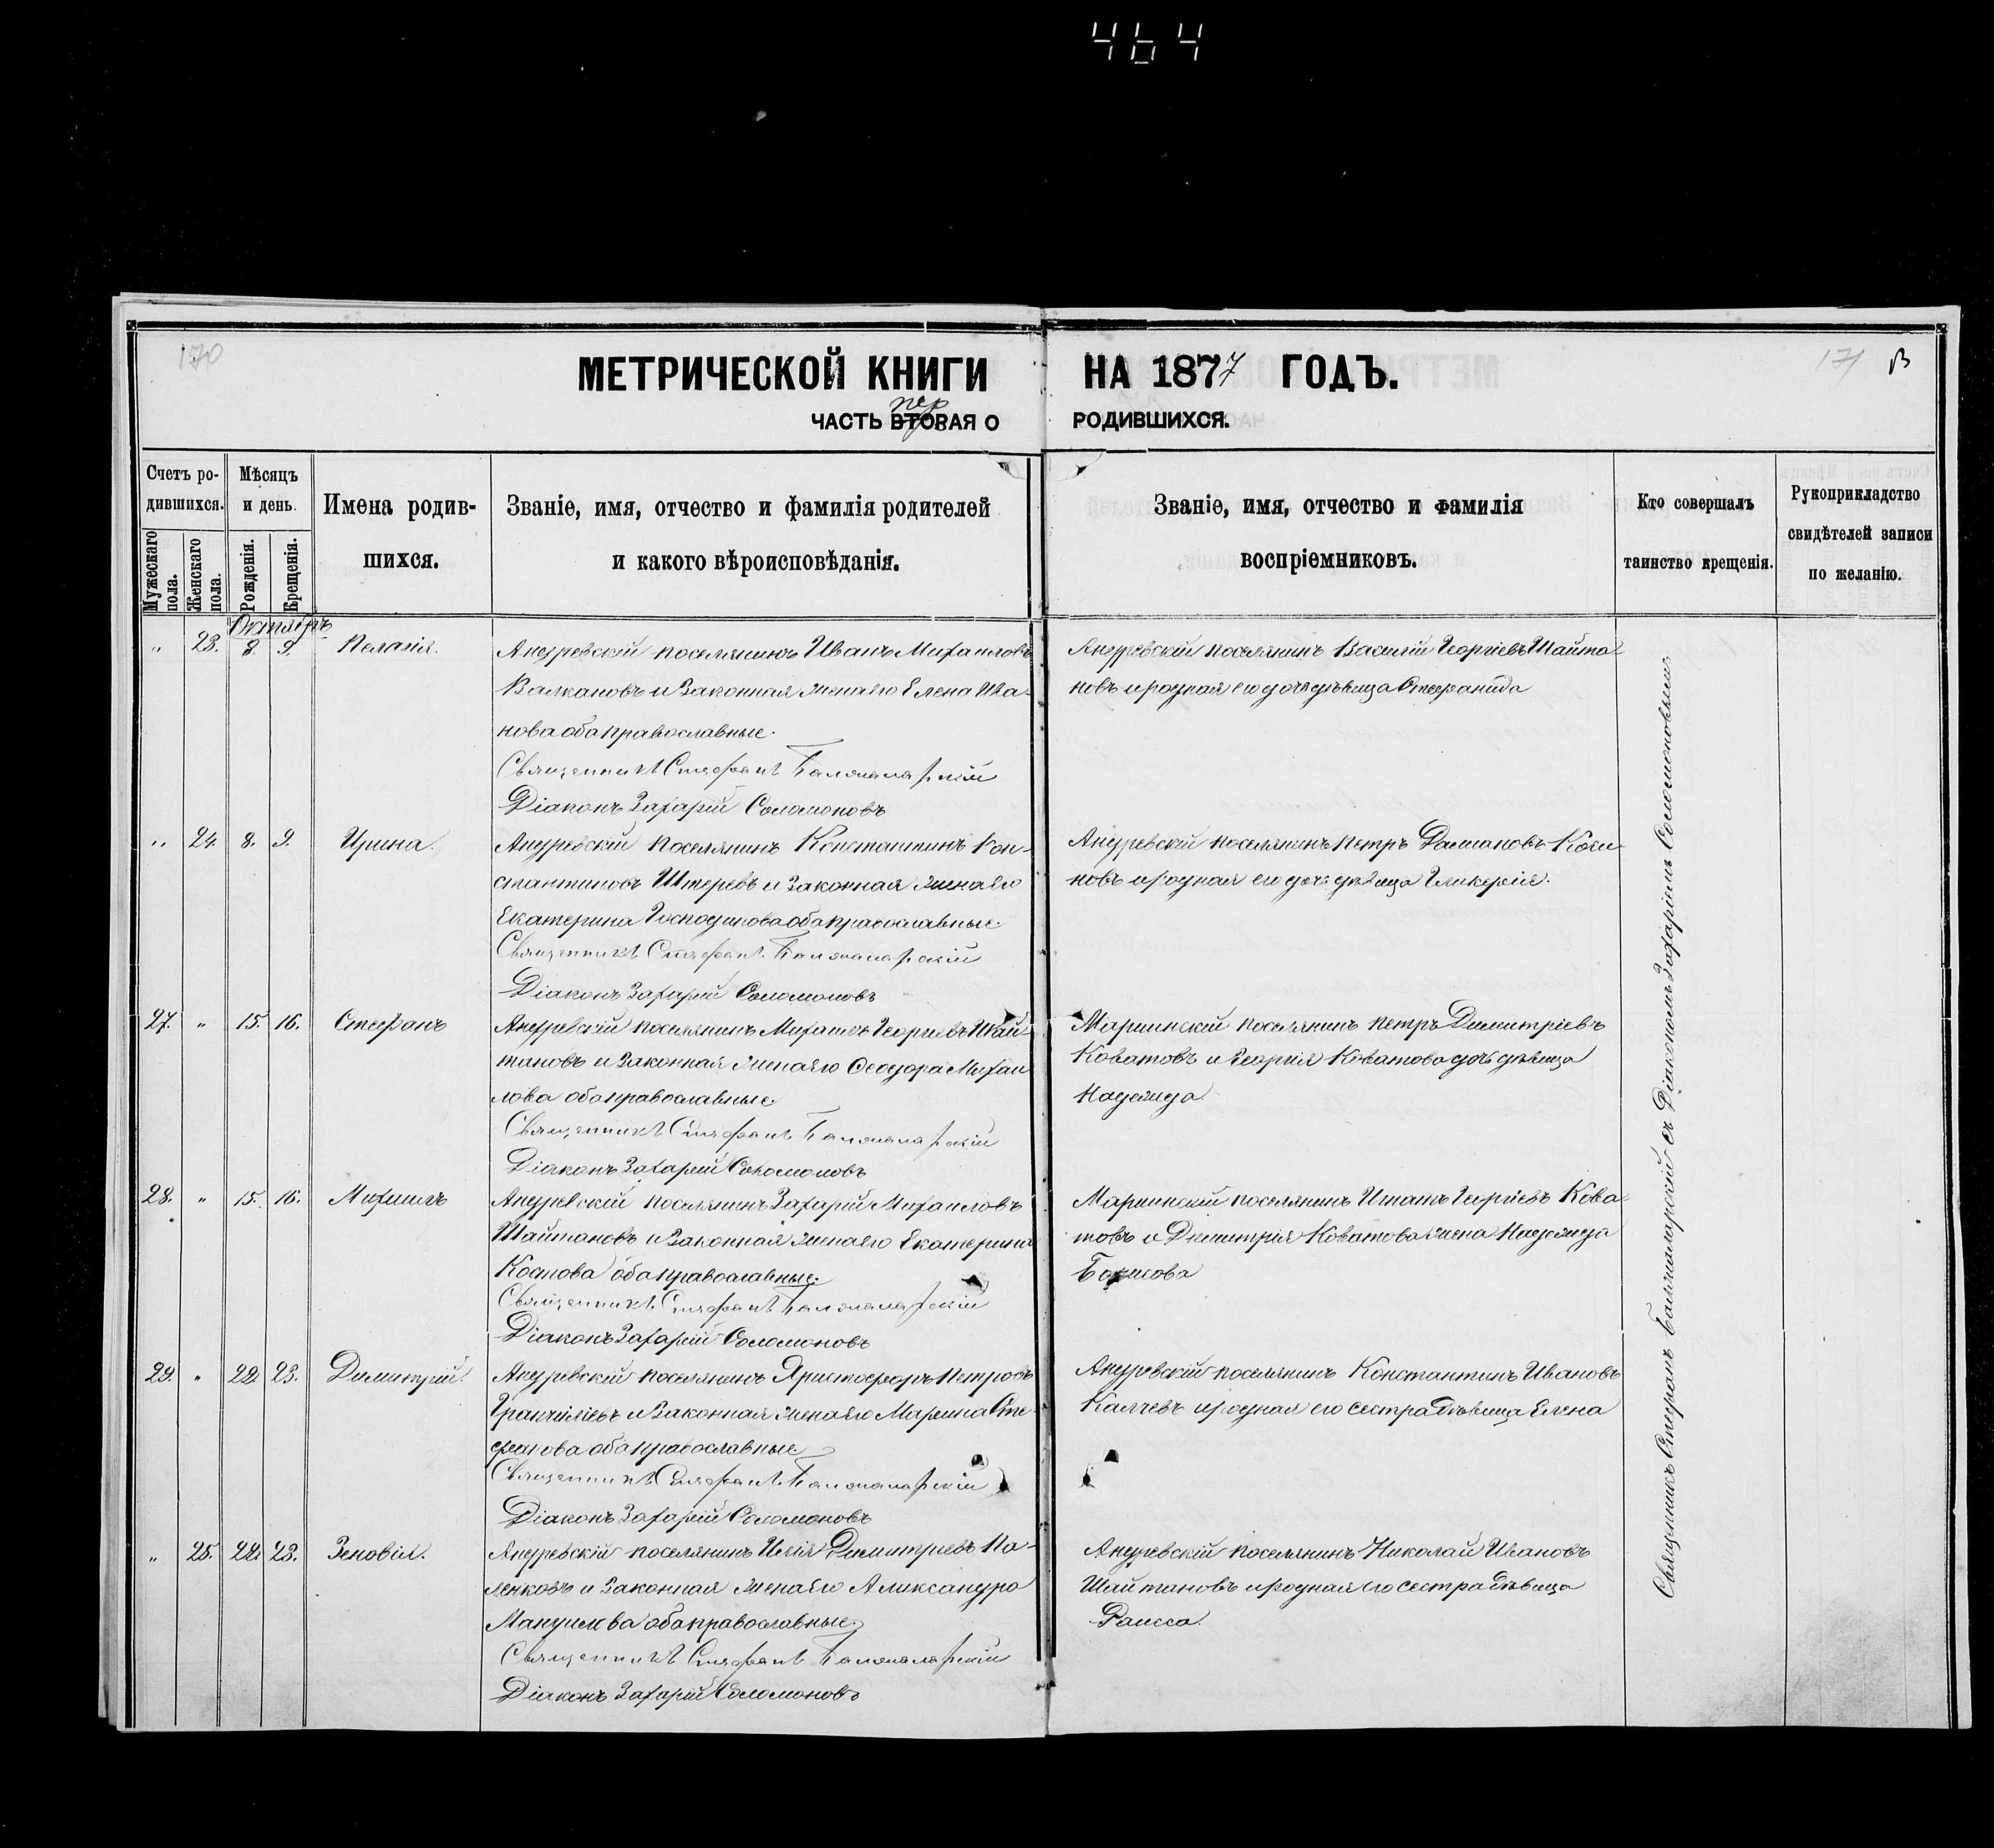 464
170
171
В
МЕТРИЧЕСКОЙ КНИГИ НА 1877 ГОДЪ.
ЧАСТЬ ВТОРАЯ О РОДИВШИХСЯ.
пер
Счетъ ро-
дившихся.
Мужескаго пола.
Женскаго пола.
Мѣсяцъ
и день.
Рожденія.
Крещенія.
Имена родив-
шихся.
Званіе, имя, отчество и фамилія родителей
и какого вѣроисповѣданія.
Званіе, имя, отчество и фамилія
воспріемниковъ.
Кто совершалъ
таинство крещенія.
Рукоприкладство
свидѣтелей записи
по желанію.
Октябрь
" 23. 8. 9. Пелагія.
поселянинъ Иванъ Михаиловъ
Валкановъ и Законная жена его Елена Ива-
нова оба православные.
Священникъ Стефанъ
Діаконъ Захарій Соломоновъ
поселянинъ Василій Георгіевъ Шайта-
новъ и родная его дочь дѣвица Стефанида
" 24. 8. 9. Ирина.
поселянинъ Константинъ Кон-
стантиновъ Штеревъ и Законная жена его
Екатерина Господинова оба православные.
Священникъ Стефанъ
Діаконъ Захарій Соломоновъ
поселянинъ Петръ
новъ и родная его дочь дѣвица Гликерія.
27. " 15. 16. Стефанъ
поселянинъ Михаилъ Георгіевъ Шай-
тановъ и Законная жена его Ѳеодора Михаи
лова оба православные.
Священникъ Стефанъ
Діаконъ Захарій Соломоновъ
Маріинскій поселянинъ Петръ Димитріевъ
Коватовъ и Георгія Коватова дочь дѣвица
Надежда
28. " 15. 16. Михаилъ
поселянинъ Захарій Михаиловъ
Шайтановъ и Законная жена его Екатерина
Костова оба православные.
Священникъ Стефанъ
Діаконъ Захарій Соломоновъ
Маріинскій поселянинъ Игнатъ Георгіевъ Кова-
товъ и Димитрія Коватова жена Надежда
Борисова
29. " 22. 23. Димитрій.
поселянинъ Христофоръ Петровъ
и Законная жена его Марина Сте-
фанова оба православные
Священникъ Стефанъ
Діаконъ Захарій Соломоновъ
поселянинъ Константинъ Ивановъ
Калчевъ и родная его сестра дѣвица Елена
" 25. 22. 23. Зеновія.
поселянинъ Илія Димитріевъ По-
ленковъ и Законная жена его Александра
Мануилова оба православные.
Священникъ Стефанъ
Діаконъ Захарій Соломоновъ
поселянинъ Николай Ивановъ
Шайтановъ и родная его сестра дѣвица
Раисса.
Священникъ Стефанъ съ Діакономъ Захаріемъ Соломоновымъ